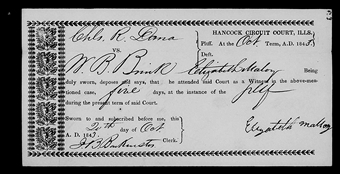 Chls. R. Dana
HANCOCK CIRCUIT COURT, ILLS.
Plff. At the Oct Term, A.D. 1843.
VS.
Deft.
W. B. Brink Elizabeth Maloy Being
duly sworn, deposes and says, that he attended said Court as a Witness in the above-men-
tioned case, five days, at the instance of the plff
during the present term of said Court.
Sworn to and subscribed before me, this
20th day of Oct
A. D. 1843.
J. B. Backenstos Clerk.
Elizabeth Malloy